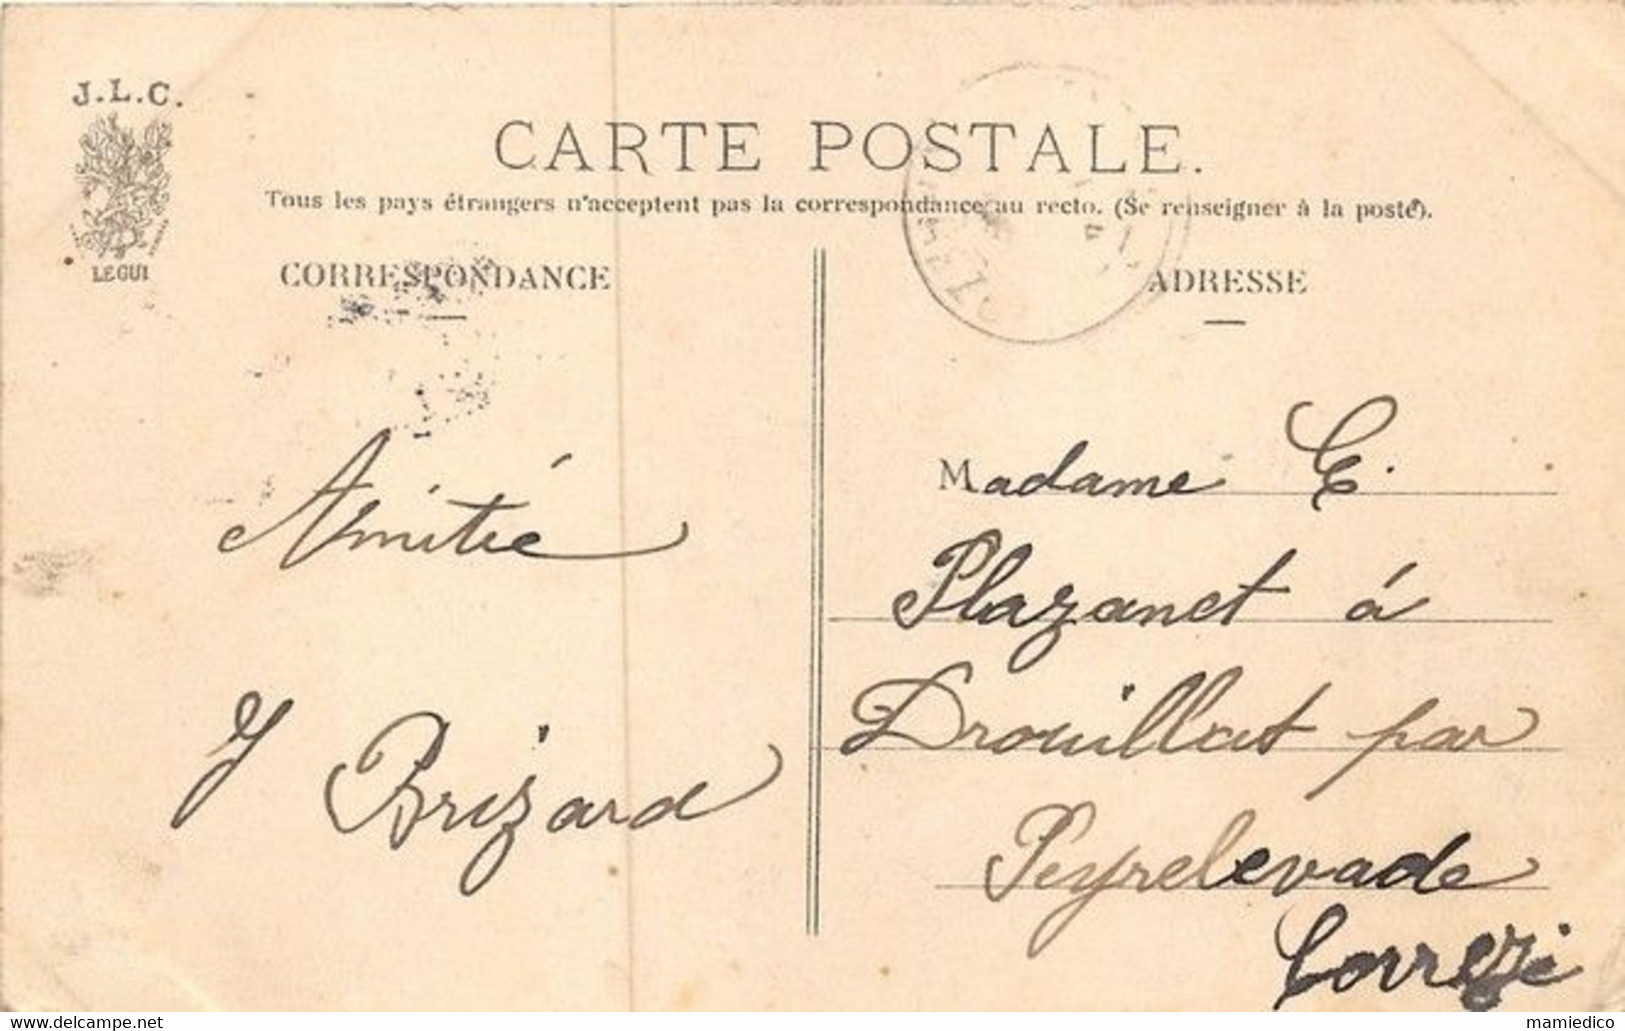 J.L.C.
LEGUI
CARTE POSTALE.
Tous les pays étrangers n'acceptent pas la correspondance au recto. (Se renseigner à la poste).
CORRESPONDANCE
Amitié
Y Brizard
ADRESSE
Madame C.
Plazanet á
Drouillat par
Peyrelevade
Corrèze
www.delcampe.net
mamiedico